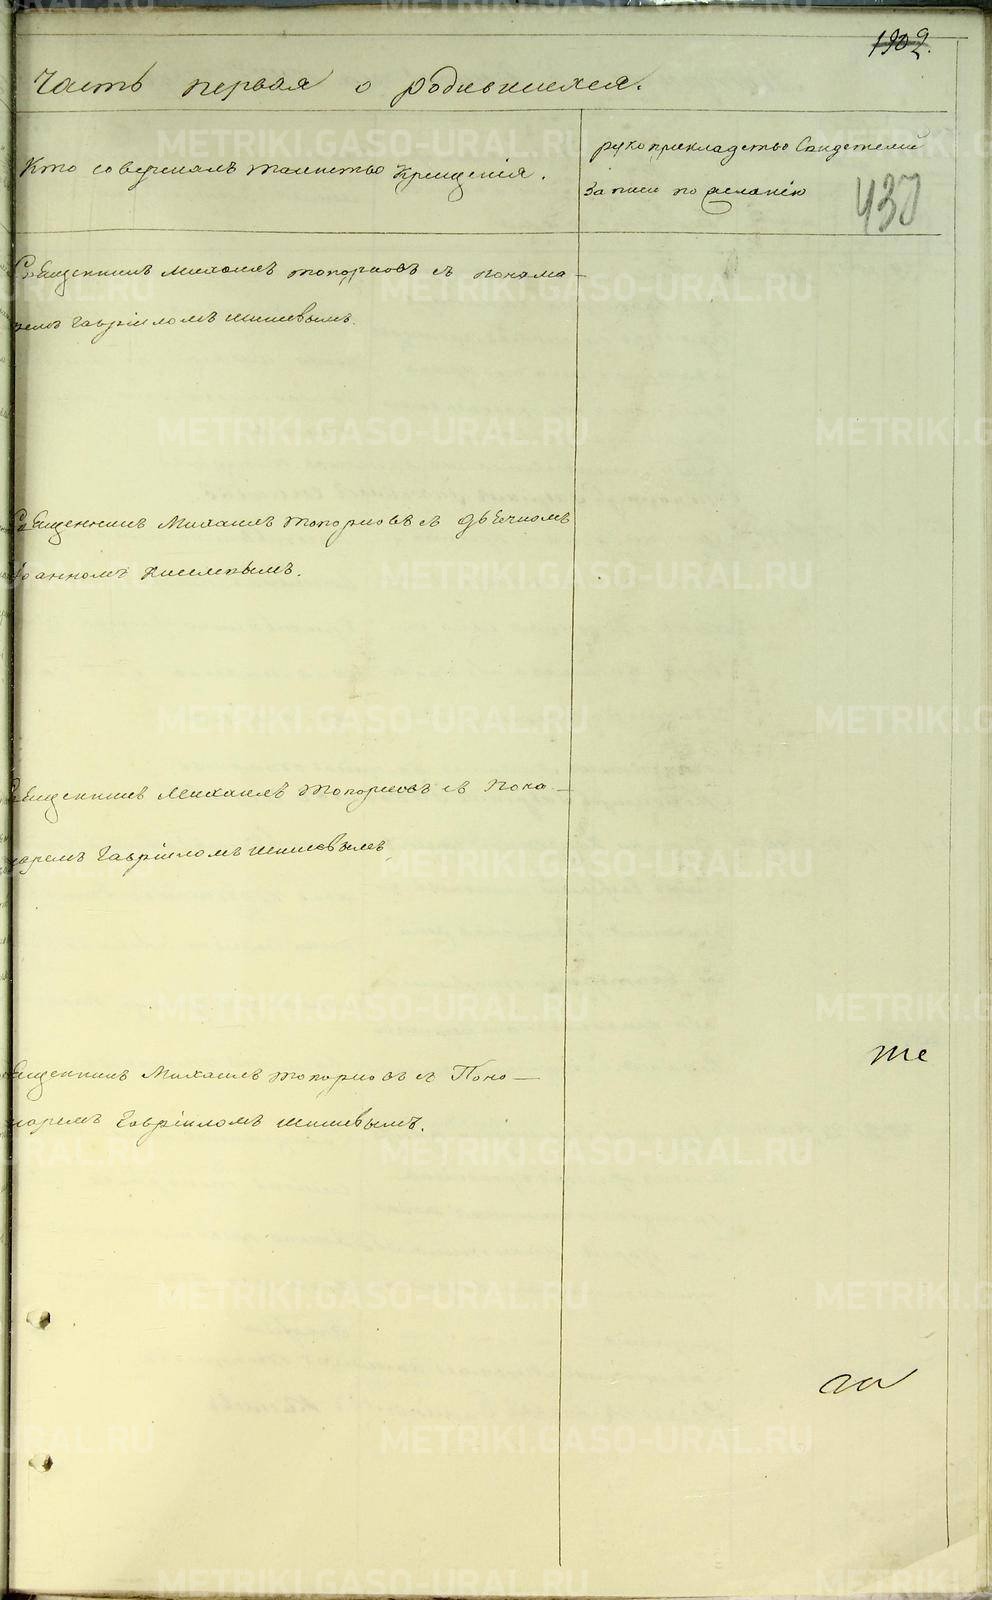 1902.
Часть первая о родившихся.
Кто совершалъ таинство Крещенія.
рукоприкладство Свидетелей
записи по желанію
430
Священникъ Михаилъ Топорковъ съ понама-
ремъ Гавріиломъ Шишевымъ.
Священникъ Михаилъ Топорковъ съ дьячкомъ
Іоанномъ Киселевымъ.
Священникъ Михаилъ Топорковъ съ Поно-
маремъ Гавріиломъ Шишевымъ
Священникъ Михаилъ Топорковъ съ Поно-
маремъ Гавріиломъ Шишевымъ.
те
METRIKI.GASO-URAL.RU